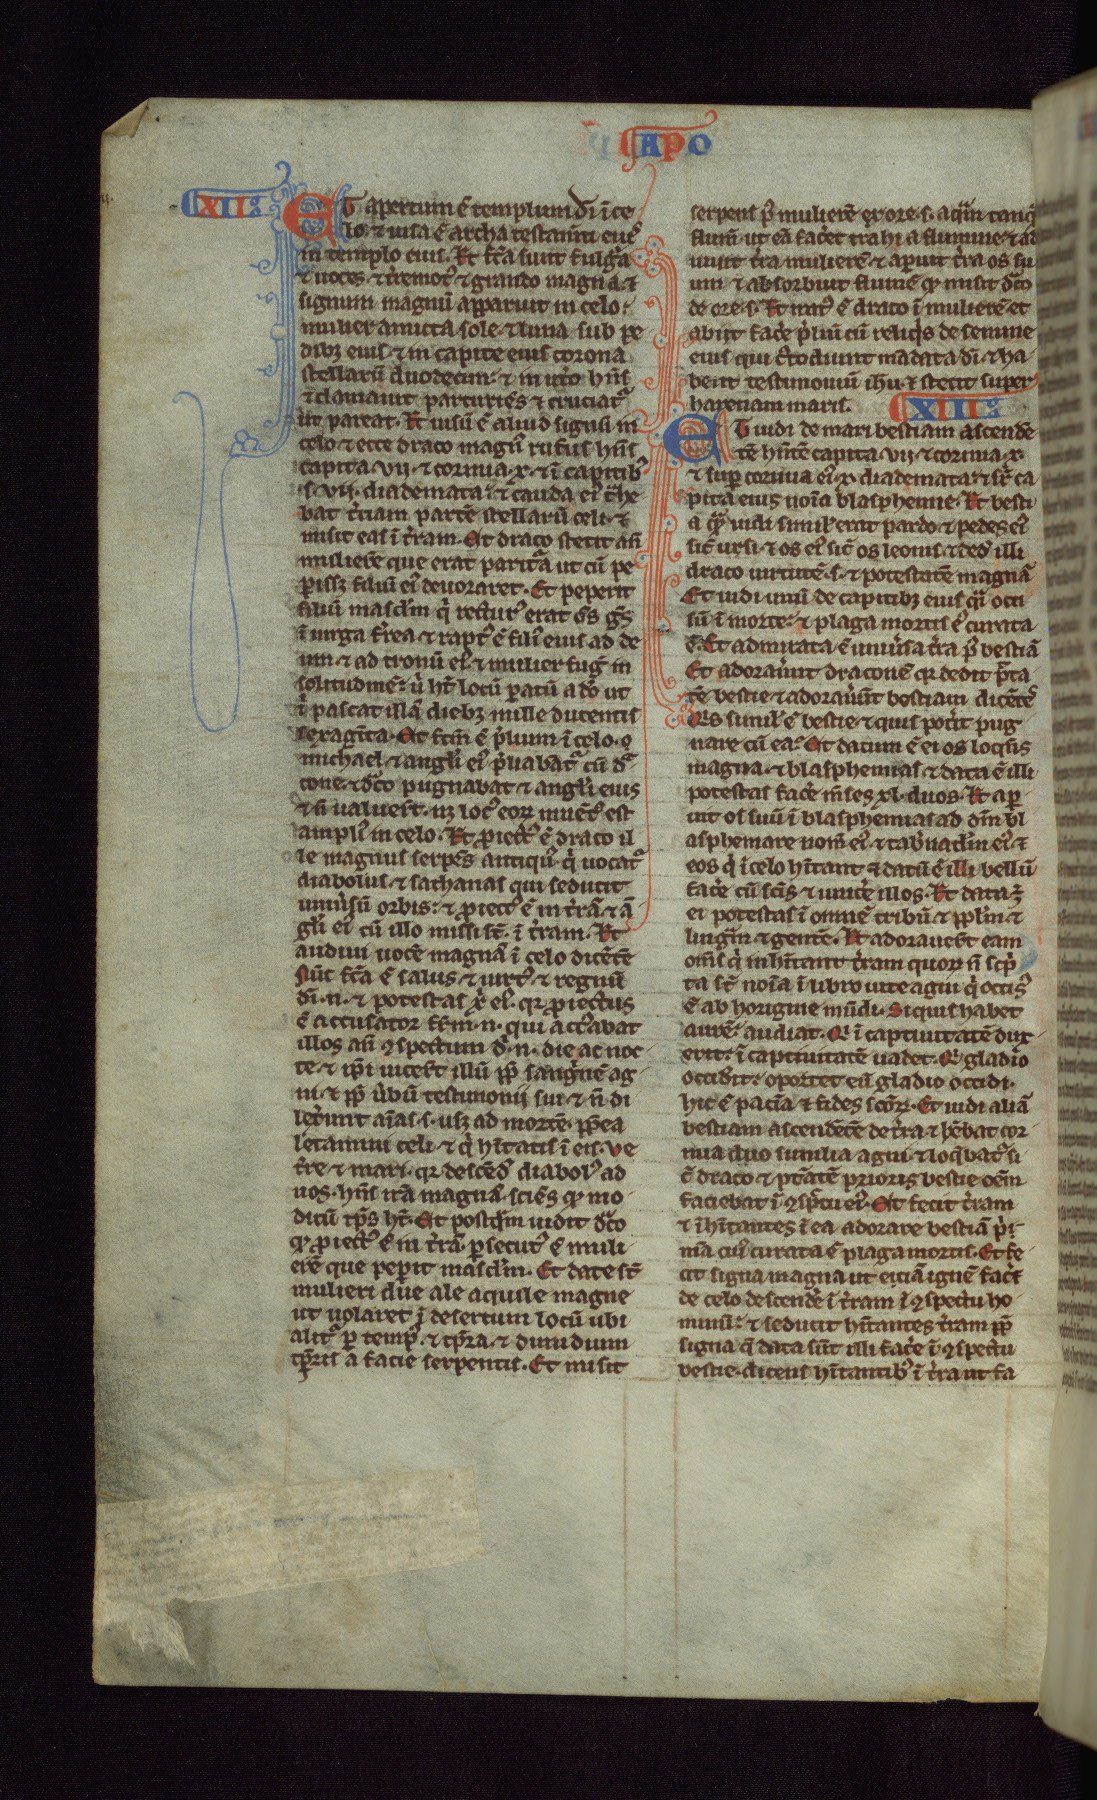 APO
XII
ET apertum ē templum dī ī ce
lo. ⁊ uisa ē archa testam̄ti eius
in templo eius. Et fc̄a sunt fulg̃a
⁊ uoces ⁊ t̃remot᷒ ⁊ grando magna. ⁊
signum magnū apparuit in celo.
mulier amicta sole. ⁊ luna sub pe
dibꝫ eius. ⁊ in capite eius corona
stellarū duodecim. ⁊ in ut̃o hn̄s
⁊ clamauit parturiēs ⁊ cruciat᷒
ut pareat. Et uisū ē aliud signū in
celo. ⁊ ecce draco magn᷒ rufus hn̄s
capita .vij. ⁊ cornua .x. ⁊ ī capitib᷒
.s. vij. diademata. ⁊ cauda ei᷒ t̃he
bat t̃ciam partē stellarū celi. ⁊
misit eas ī t̃ram. Et draco stetit an̄
mulierē que erat parit᷒a ut cū pe
ꝑissꝫ filiū ei᷒ deuoraret. Et peperit
filiū mascl̄m q̄ rectur᷒ erat om̄s gn̄s
ī uirga fr̃ea. ⁊ rapt᷒ ē fili᷒ eius ad de
um. ⁊ ad tronū ei᷒. ⁊ mulier fug̃ in
solitudinē. u̇ ht̄ locū paratū a do̅ ut
ī pascat illā diebꝫ mille ducentis
sexagīta. Et fc̄m ē p̃lium ī celo.
michael ⁊ angl̄i ei᷒ p̃liabāt᷒ cū dra
cone. ⁊ dc̄o pugnabat ⁊ angl̄i eius
⁊ n̄ ualuer̄t. nꝫ loc᷒ eoꝝ inuēt᷒ est
ampli᷒ in celo. Et ꝓiect᷒ ē draco il
le magnus serpēs antiqu᷒ q̇ uocat᷒
diabolus. ⁊ sathanas qui seducit
uniu̇sū orbis. ⁊ ꝓiect᷒ ē in t̃rā. ⁊ ā
gl̄i ei᷒ cū illo missi st̄ ī t̃ram. Et
audiui uocē magnā ī celo dicētē
Nūc fc̄a ē salus ⁊ uirt᷒ ⁊ regnū
dī .n. ⁊ potestas xp̄i ei᷒. qꝛ ꝓiectus
ē accusator fr̄m .n. qui accu̇abat
illos an̄ ꝯspectum dī .n. die ac noc
te. ⁊ ip̄i uicer̄t illū ꝓp̄ sanguinē ag
ni. ⁊ ꝓp̄ u̇bū testimonij sui. ⁊ n̄ di
lex̃unt aīas .s. usqꝫ ad mortē. ꝓp̄ea
letamini celi. ⁊ q̇ hītatis ī eis. Ve
t̃re ⁊ mari. qꝛ descēd᷒ diabol᷒ ad
uos. hn̄s irā magnā. sciēs qꝫ mo
dicū tp̄s ht̄. Et postq̄m uidit dc̄o
qꝫ ꝓiect᷒ ē in t̃rā. ꝑsecut᷒ ē muli
erē que peꝑit mascl̄m. Et date st̄
mulieri due ale aquile magne
ut uolaret ī desertum locū ubi
alit᷒ ꝑ temp᷒ ⁊ tp̄ra. ⁊ dimidium
tp̄ris a facie serpentis. Et misit
serpens p᷒ mulierē ex ore .s. aq̄m tanq̄
flum̄ ut eā fac̃et trahi a flumine. ⁊ ad
iuuit t̃ra mulierē. ⁊ aperuit t̃ra os su
um. ⁊ absorbuit flumē qꝫ misit dc̄o
de ore .s. Et irat᷒ ē draco ī mulierē et
abiit fac̃e p̃liū cū reliq̇s de semine
eius qui c᷒todiunt mādata dī. ⁊ ha
bent testimoniū ihū. ⁊ stetit super
harenam maris.
XIII
ET uidi de mari bestiam ascende
tē hn̄tē capita .vij. ⁊ cornua .x.
⁊ suꝑ cornua ei᷒ .x. diademata. ⁊ sr̄ ca
pita eius noīa blasphemie. Et besti
a q̄ uidi simil᷒ erat pardo. ⁊ pedes ei᷒
sic̄ ursi. ⁊ os ei᷒ sic̄ os leonis. ⁊ ded᷒ illi
draco uirtutē .s. ⁊ potestatē magnā
Et uidi unū de capitibꝫ eius q̄i occi
sū ī morte. ⁊ plaga mortis ei᷒ curata
ē. Et admirata ē uniu̇sa t̃ra p᷒ bestiā
Et adorau̇unt draconē qꝛ dedit p̄ta
tē bestie. ⁊ adorau̇ūt bestiam dicētes
Qis simil᷒ ē bestie. ⁊ quis pot̃it pug
nare cū ea. Et datum ē ei os loq̄ns
magna. ⁊ blasphemias. ⁊ data ē illi
potestas fac̃e m̄ses xl. duos. Et aꝑ
uit os suū ī blasphemias ad dm̄ bl
asphemare nom̄ ei᷒. ⁊ tab̃nacl̄m ei᷒. ⁊
eos q̇ ī celo hītant. ⁊ datū ē illi bellū
fac̃e cū scīs ⁊ uinc̃e illos. Et data ē
ei potestas ī omnē tribū ⁊ ppl̄m. ⁊
linguā ⁊ gentē. Et adorauer̄t eam
om̄s q̇ inhītant t̃ram quoꝝ n̄ scp̄
ta st̄ noīa ī libro uite agni q̇ occis᷒
ē ab horigine mūdi. Si quis habet
aurē. audiat. Qi ī captiuitatē dux
erit. ī captiuitatē uadet. Qi gladio
occid̃it. oportet eū gladio occidi.
hic ē paciā ⁊ fides scōꝝ. Et uidi aliā
bestiam ascendētē de t̃ra ⁊ hēbat cor
nua duo similia agni. ⁊ loq̄bat᷒ si
c̄ draco. ⁊ ptātē prioris bestie oēm
faciebat ī ꝯspc̄tu ei᷒. Et fecit t̃ram
⁊ īhītantes ī ea adorare bestiā ṗi
mā cui᷒ curata ē plaga mortis. Et fe
cit signa magna ut eciā ignē fac̃et
de celo descend̃e ī t̃ram ī ꝯspectu ho
minū. ⁊ seducit hītantes t̃ram ꝓp̄
signa q̄ data sūt illi fac̃e ī ꝯspectu
bestie. dicens hītantib᷒ ī t̃ra ut fa